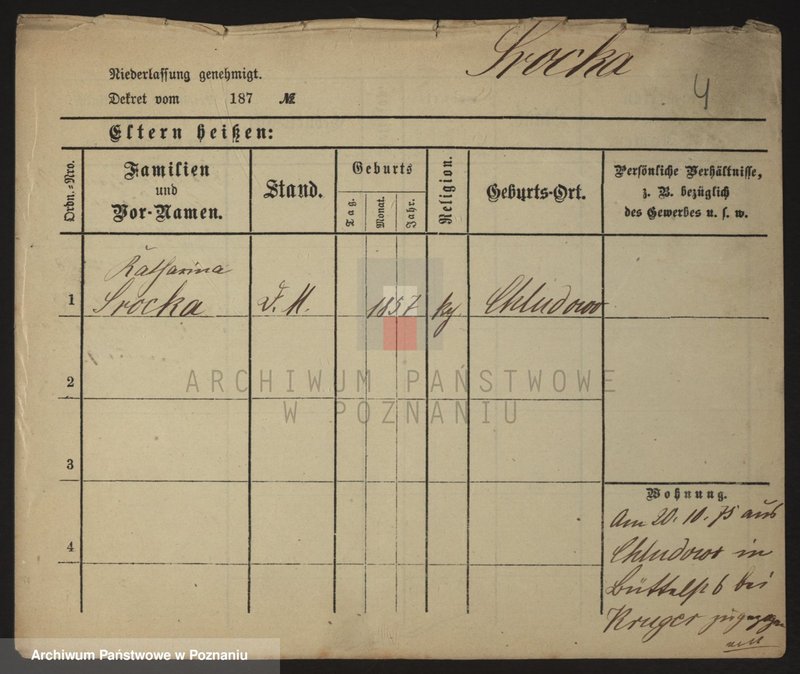 Srocka
4
Niederlassung genehmigt.
Dekret vom 187 №
Eltern heißen:
Ordn.-Nro.
Familien
und
Vor-Namen.
Stand.
Geburts
Tag.
Monat.
Jahr.
Religion.
Geburts-Ort.
Persönliche Verhältnisse,
z. B. bezüglich
des Gewerbes u. s. w.
Katharina
1 Srocka D. M. 1857 ky Chludowo
2
ARCHIWUM PAŃSTWOWE
W POZNANIU
3
Wohnung.
Am 20.10.75 aus
4 Chludowo in
Büttelstr 6 bei
Kruger zugezogen
Archiwum Państwowe w Poznaniu